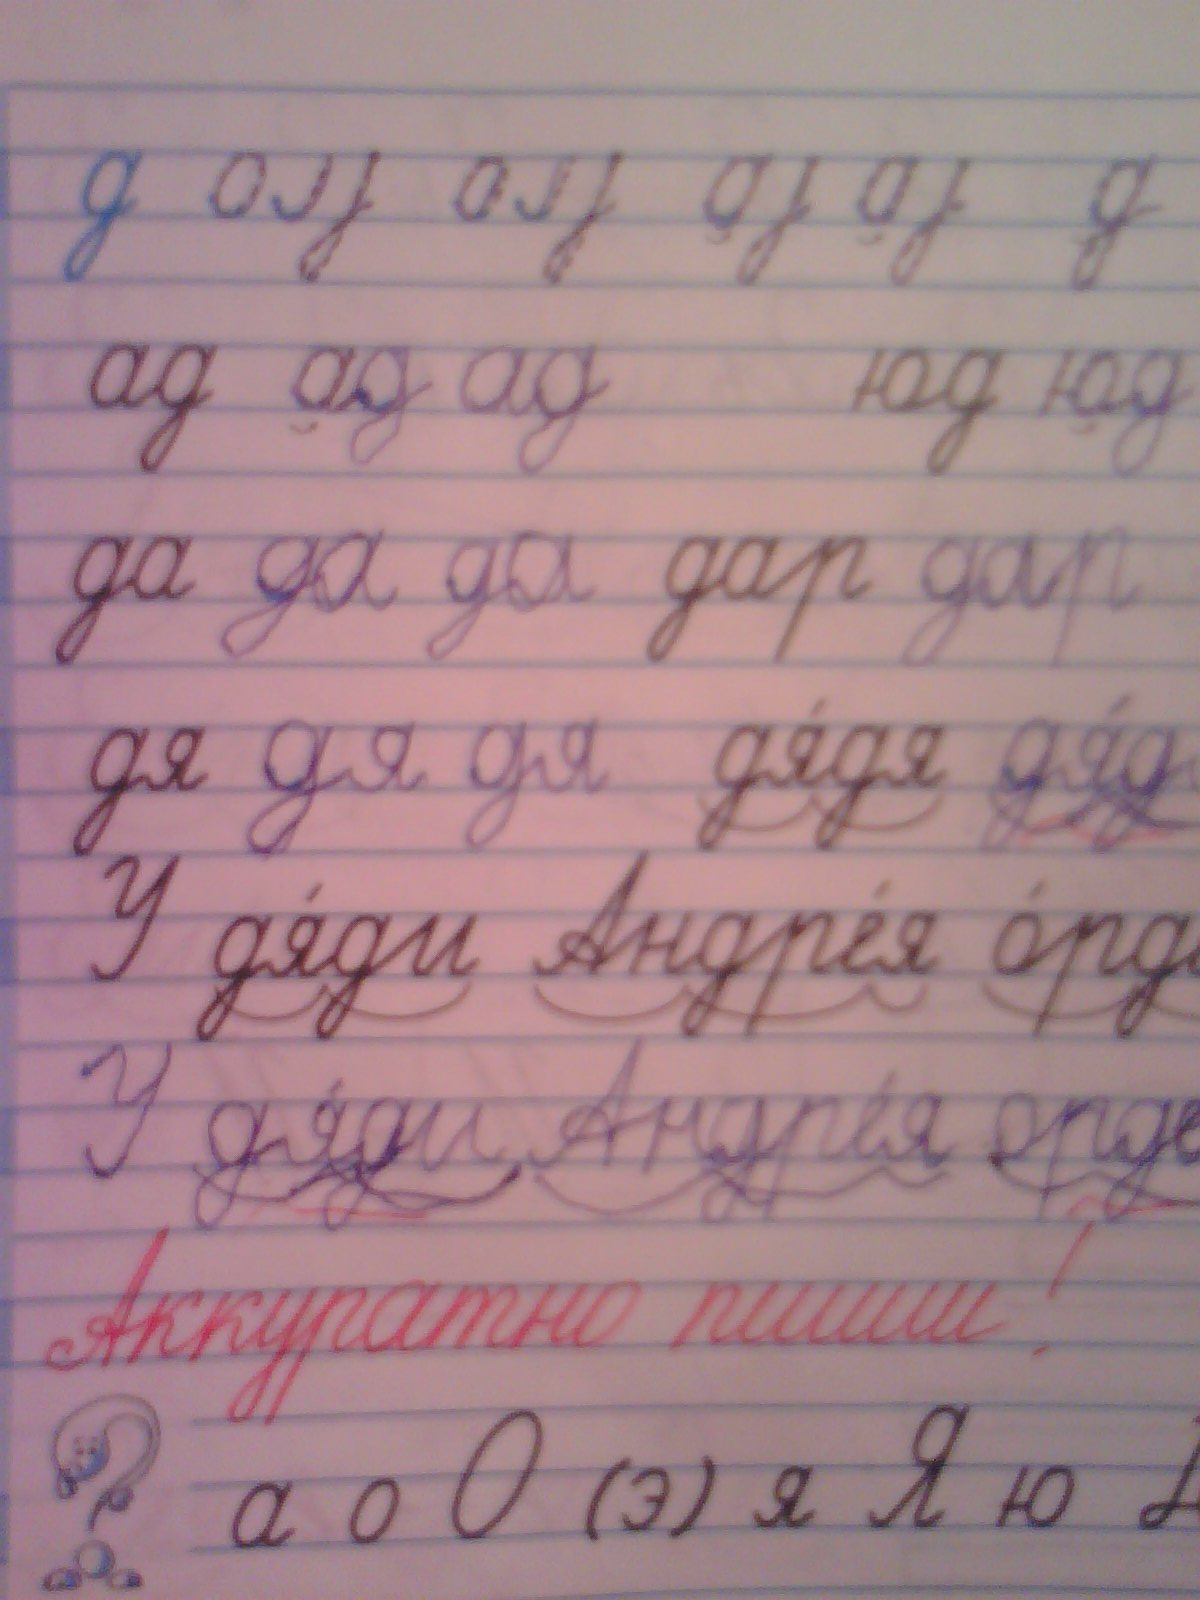 д д д д
ад ад ад юд юд
да да да дар дар
дя дя дя дя́дя дя́д
У дя́ди Андре́я о́рде
У дя́ди Андре́я орде
Аккуратно пиши!
а о О (э) я Я ю Д